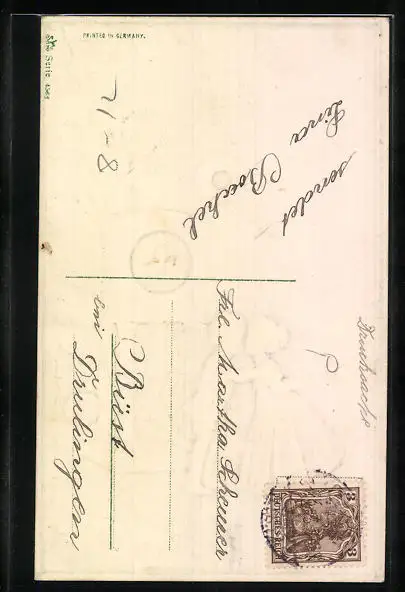 PRINTED IN GERMANY.
Serie
71-8
sendet
Lina Boechel
Drucksache
Frl. Martha Scheuer
Büst
bei Drulingen
3 3
DEUTSCHES REICH